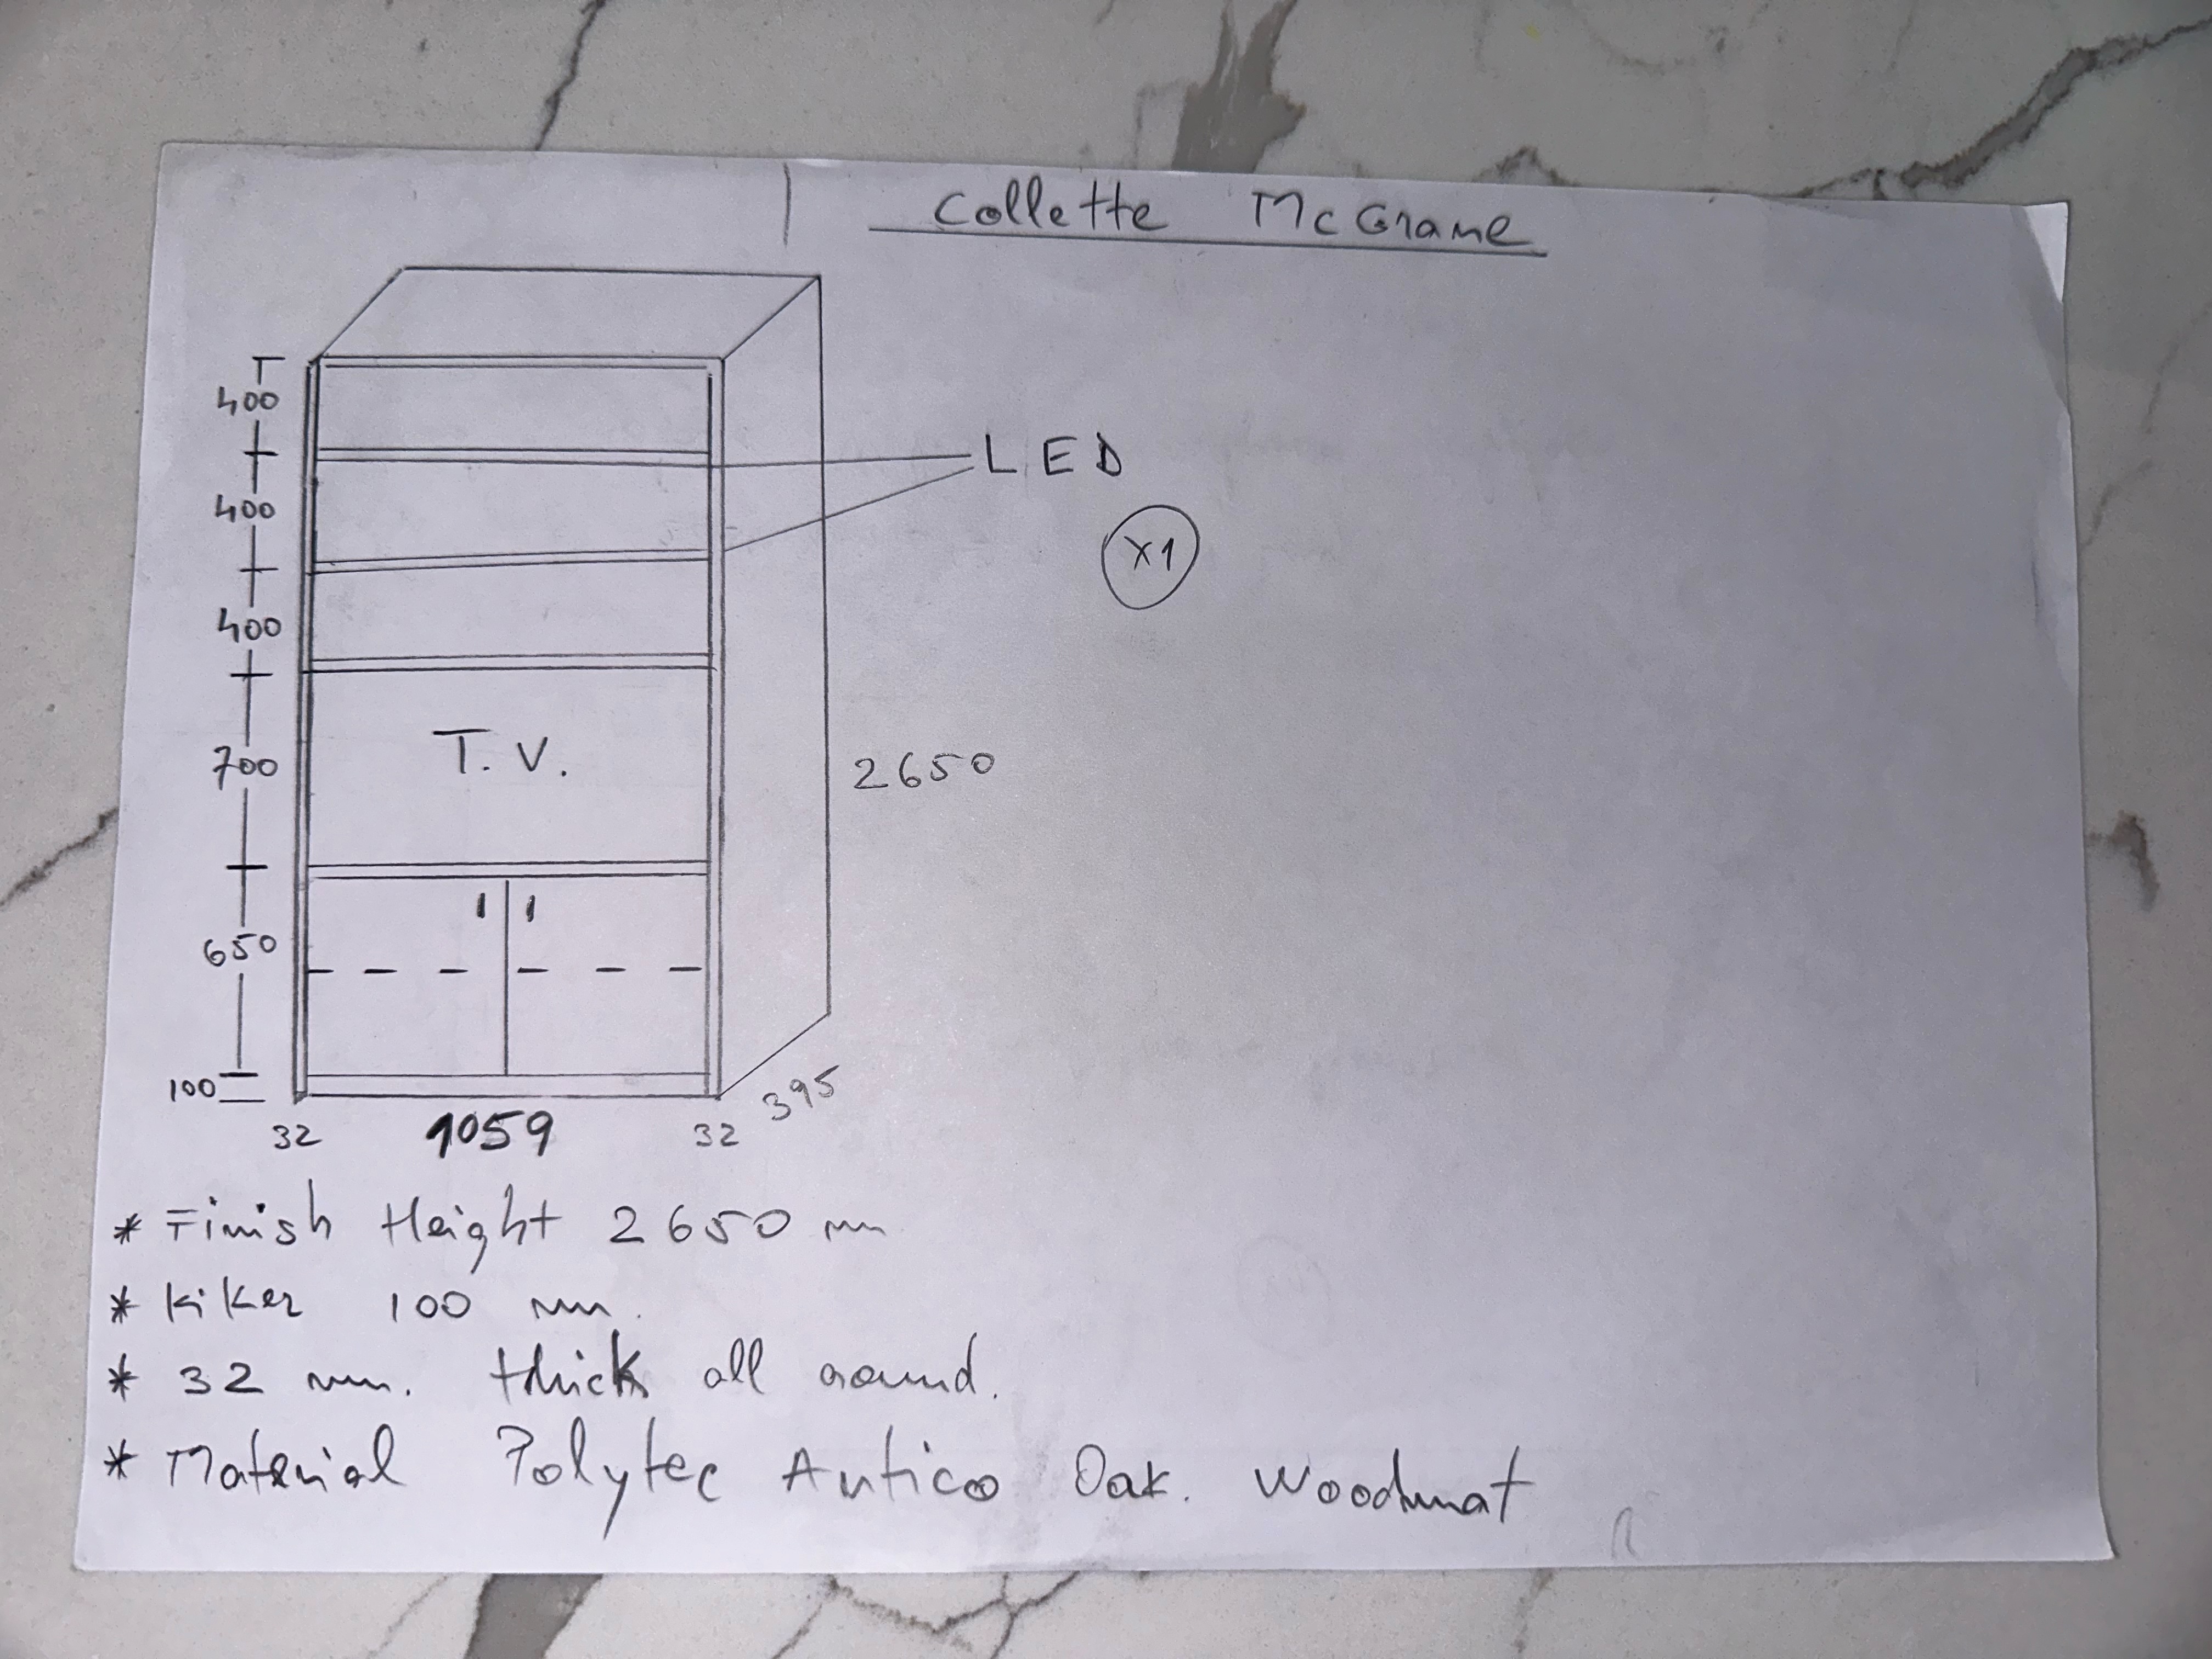 Collette McGrane
400
LED
400
X1
400
T.V.
700
2650
650
100
395
32
1059
32
* Finish Height 2650 mm
* Kiker 100 mm.
* 32 mm. thick all around.
* Material Polytec Antico Oak. Woodmat